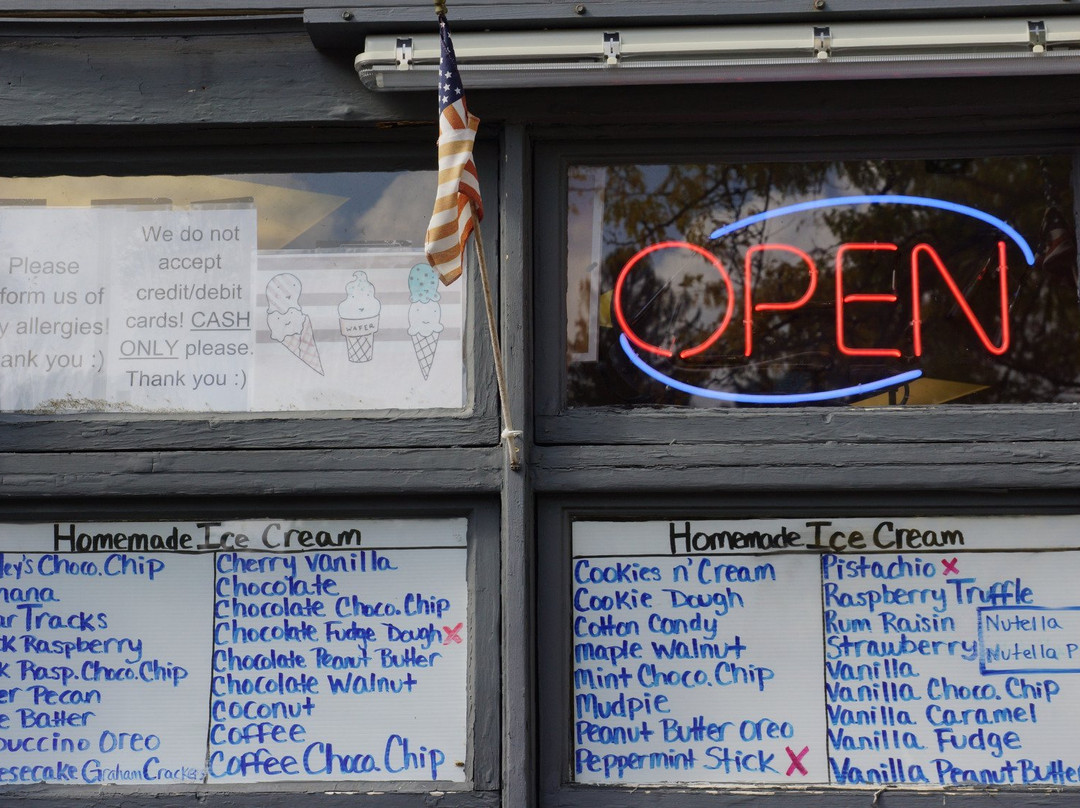 Please
form us of
allergies!
ank you :)
We do not
accept
credit/debit
cards! CASH
ONLY please.
Thank you :)
WAFER
OPEN
Homemade Ice Cream
ley's Choco. Chip
nana
ar Tracks
ck Raspberry
k Rasp. Choco. Chip
er Pecan
e Batter
puccino Oreo
esecake Graham Cracker
Cherry Vanilla
Chocolate
Chocolate Choco. Chip
Chocolate Fudge Dough x
Chocolate Peanut Butter
Chocolate Walnut
Coconut
Coffee
Coffee Choco Chip
Homemade Ice Cream
Cookies n' Cream
Cookie Dough
Cotton Candy
Maple Walnut
Mint Choco. Chip
Mudpie
Peanut Butter Oreo
Peppermint Stick x
Pistachio x
Raspberry Truffle
Rum Raisin
Strawberry
Vanilla
Vanilla Choco. Chip
Vanilla Caramel
Vanilla Fudge
Vanilla Peanut Butter
Nutella
Nutella P